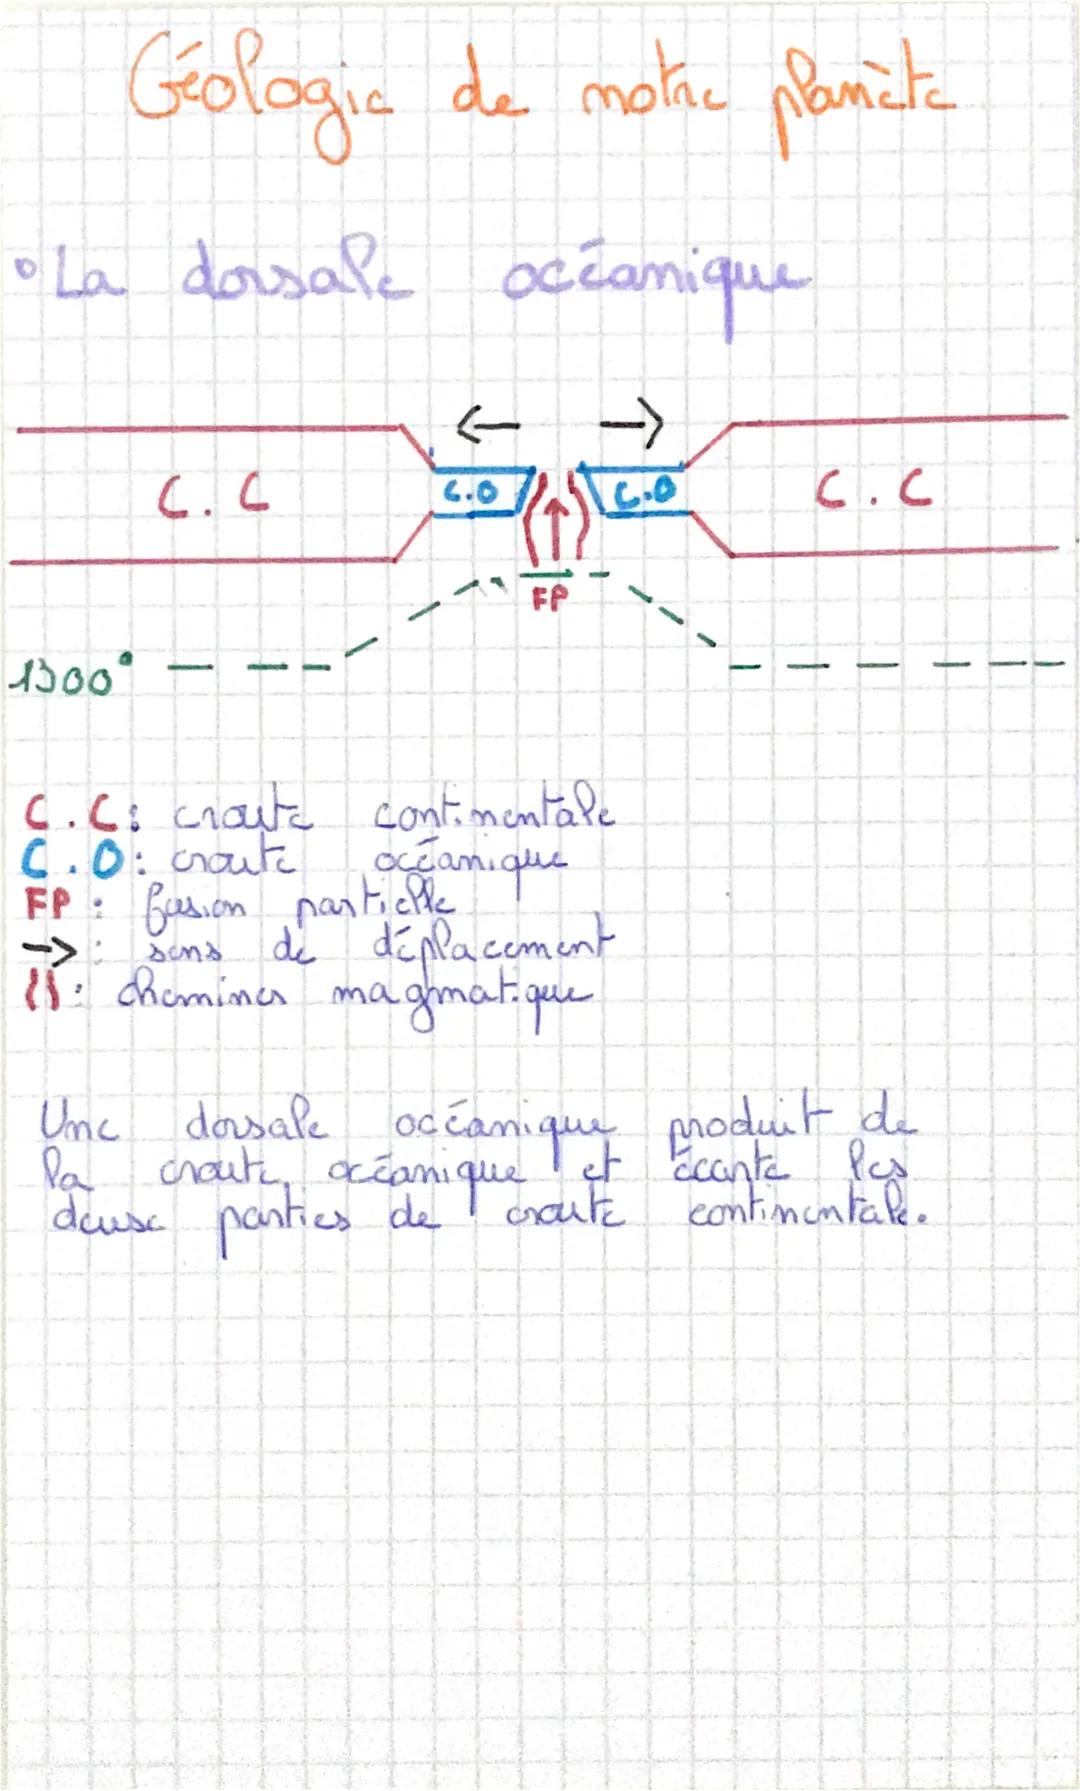 Géologie de notre planète
• La dorsale océanique
← →
C.C C.O C.O C.C
FP
1300°
C.C : croute continentale
C.O : croute océanique
FP : fusion partielle
→ : sens de déplacement
: cheminer magmatique
Une dorsale océanique produit de
la croute océanique et écarte les
deux parties de croute continentale.